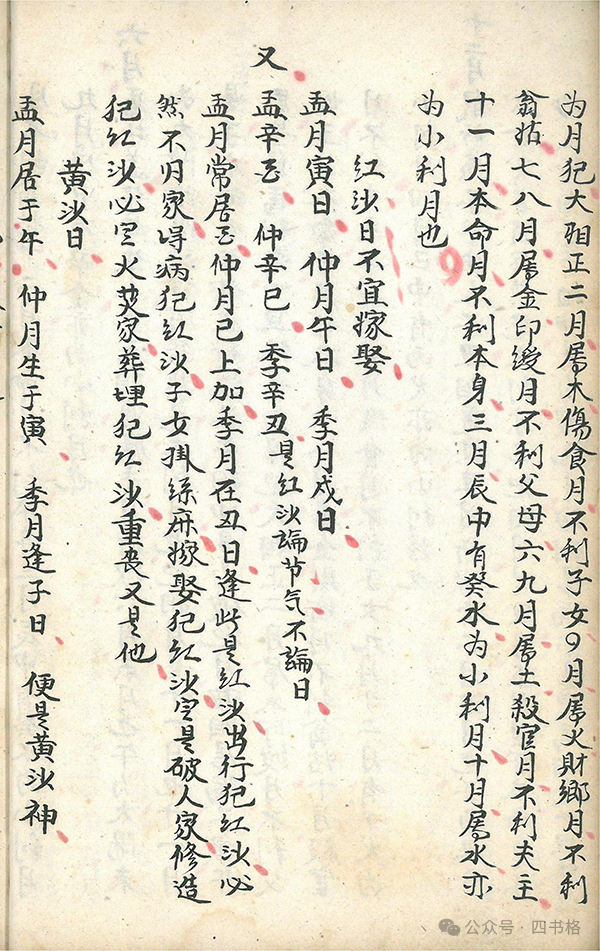 为月犯大 正二月属木傷食月不利子女9月属火財鄉月不利
翁姑七八月属金印绶月不利父母六九月属土殺官月不利夫主
十一月本命月不利本身三月辰中有癸水为小利月十月属水亦
为小利月也
红沙日不宜嫁娶
孟月寅日 仲月午日 季月戌日
又 孟辛酉 仲辛巳 季辛丑是红沙論节气不論日
孟月常居酉仲月巳上加季月在丑日逢此是红沙出行犯红沙必
然不归家得病犯红沙子女掛絲麻嫁娶犯红沙定是破人家修造
犯红沙必定火焚家葬埋犯红沙重丧又是他
黄沙日
孟月居于午 仲月生于寅 季月逢子日 便是黄沙神
公众号·四书格